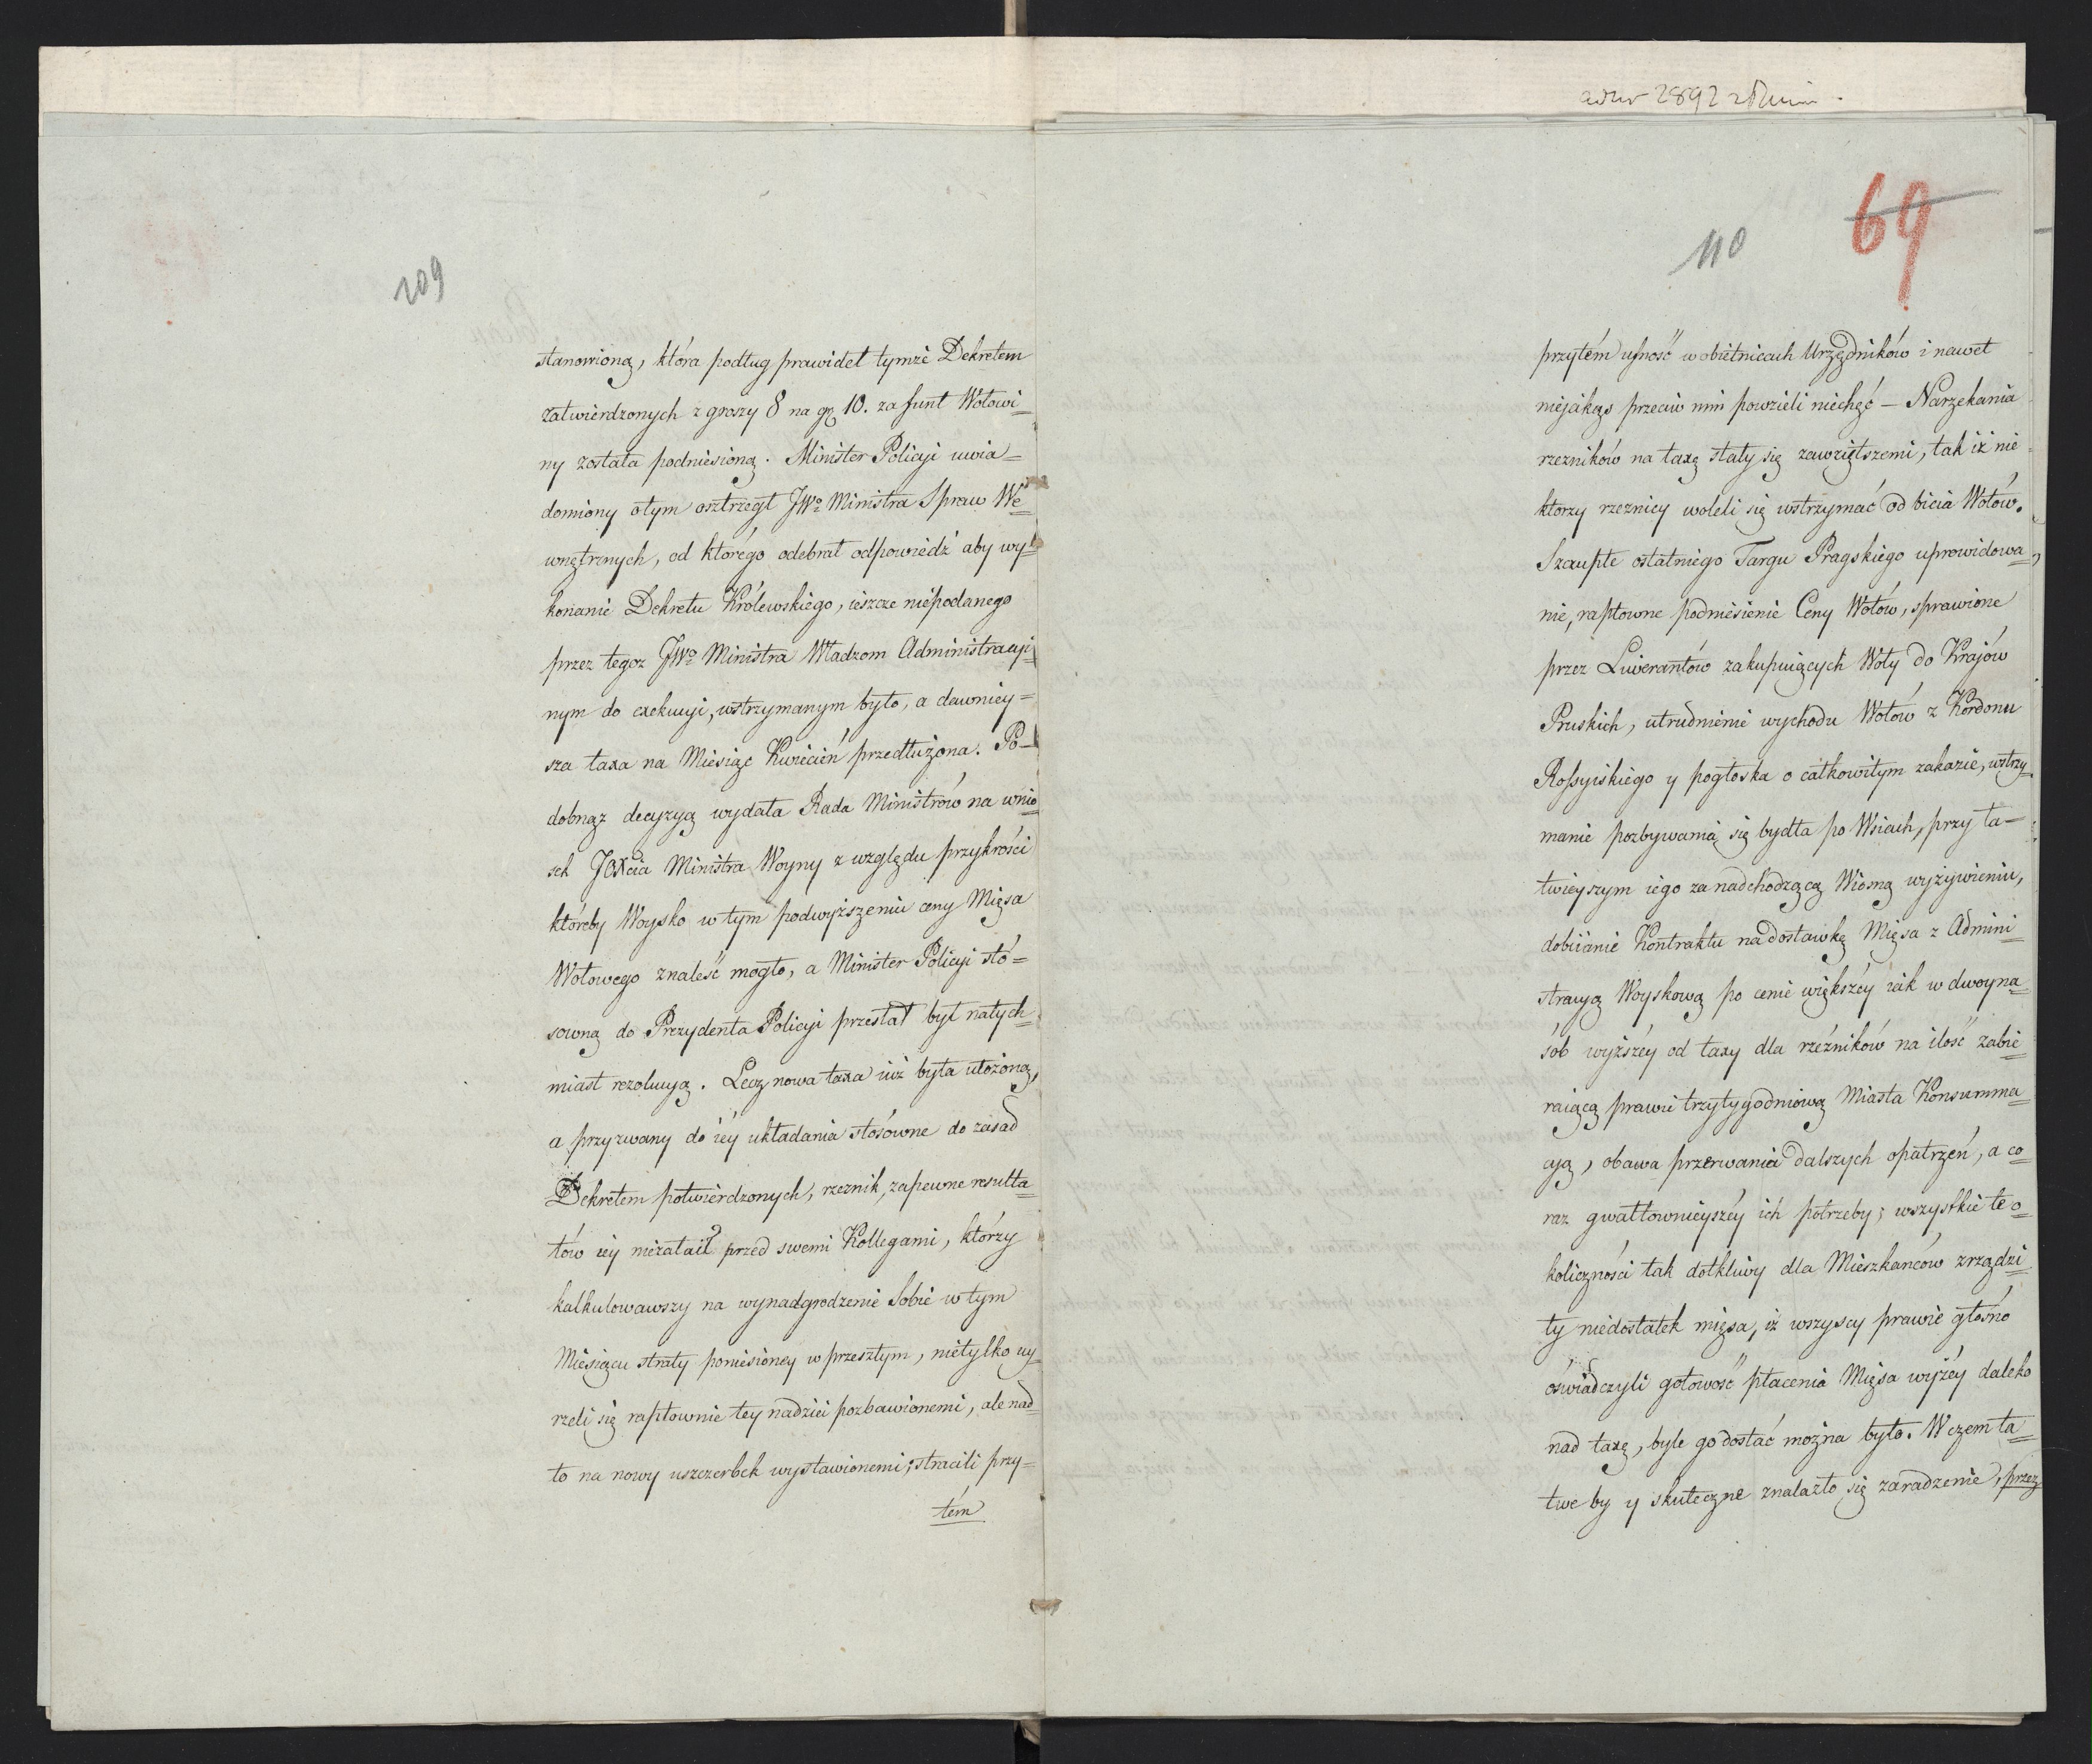 109
stanowioną, która podług prawideł tymże Dekretem
zatwierdzonych z groszy 8 na gr 10. za funt Wołowi=
ny została podniesioną. Minister Policyi uwia=
domiony o tym ostrzegł JWo Ministra Spraw We=
wnętrznych, od którego odebrał odpowiedź aby wy=
konanie Dekretu Królewskiego, ieszcze niepodanego
przez tegoz JWo Ministra Władzom Administracyi=
nym do exekucyi, wstrzymanym było, a dawniey=
sza taxa na Miesiąc Kwiecień przedłużona. Po=
dobnąż decyzyą wydała Rada Ministrów na wnio=
sek JOXcia Ministra Woyny z względu przykrości
któreby Woysko w tym podwyższeniu ceny Mięsa
Wołowego znaleść mogło, a Minister Policyi stó=
sowną do Prezydenta Policyi przesłał był natych=
miast rezolucyą. Lecz nowa taxa iuż była ułożoną,
a przyzwany do iéy układania stósowne do zasad
Dekretem potwierdzonych, rzeznik, zapewne resulta=
tów iey niezataił przed swemi Kollegami, którzy
kalkulowawszy na wynadgrodzenie Sobie w tym
Miesiącu straty poniesioney w przeszłym, nietylko uy=
rzeli się raptownie tey nadziei pozbawionemi, ale nad=
to na nowy uszczerbek wystawionemi; stracili przy=
tém
69
110
przytém ufność w obietnicach Urzędników i nawet
niejakąś przeciw nim powzieli niechęć — Narzekania
rzezników na taxę stały się zawziętszemi, tak iż nie=
ktorzy rzeznicy woleli się wstrzymać od bicia Wołów.
Szczupłe ostatniego Targu Pragskiego uprowidowa=
nie, raptowne podniesienie Ceny Wołów, sprawione
przez Liwerantów zakupuiących Woły do Kraiów
Pruskich, utrudnienie wychodu Wołów z Kordonu
Rossyiskiego y pogłoska o całkowitym zakazie, wstrzy=
manie pozbywania się bydła po Wsiach, przy ła=
twieyszym iego za nadchodzącą Wiosną wyżywieniu,
dobiianie Kontraktu na dostawkę Mięsa z Admini=
stracyą Woyskową po cenie większéy iak w dwoyna=
sób wyższéy od taxy dla rzeźników na ilość zabie=
raiącą prawie trzytygodniową Miasta Konsumma=
cyą, obawa przerwania dalszych opatrzeń, a co=
raz gwałtownieyszéy ich potrzeby; wszystkie te o=
koliczności tak dotkliwy dla Mieszkańców zrządzi=
ły niedostatek mięsa, iż wszyscy prawie głośno
oświadczyli gotowość płacenia Mięsa wyżéy daleko
nad taxę, byle go dostać można było. W czem ła=
twe by y skuteczne znalazło się zaradzenie, przez